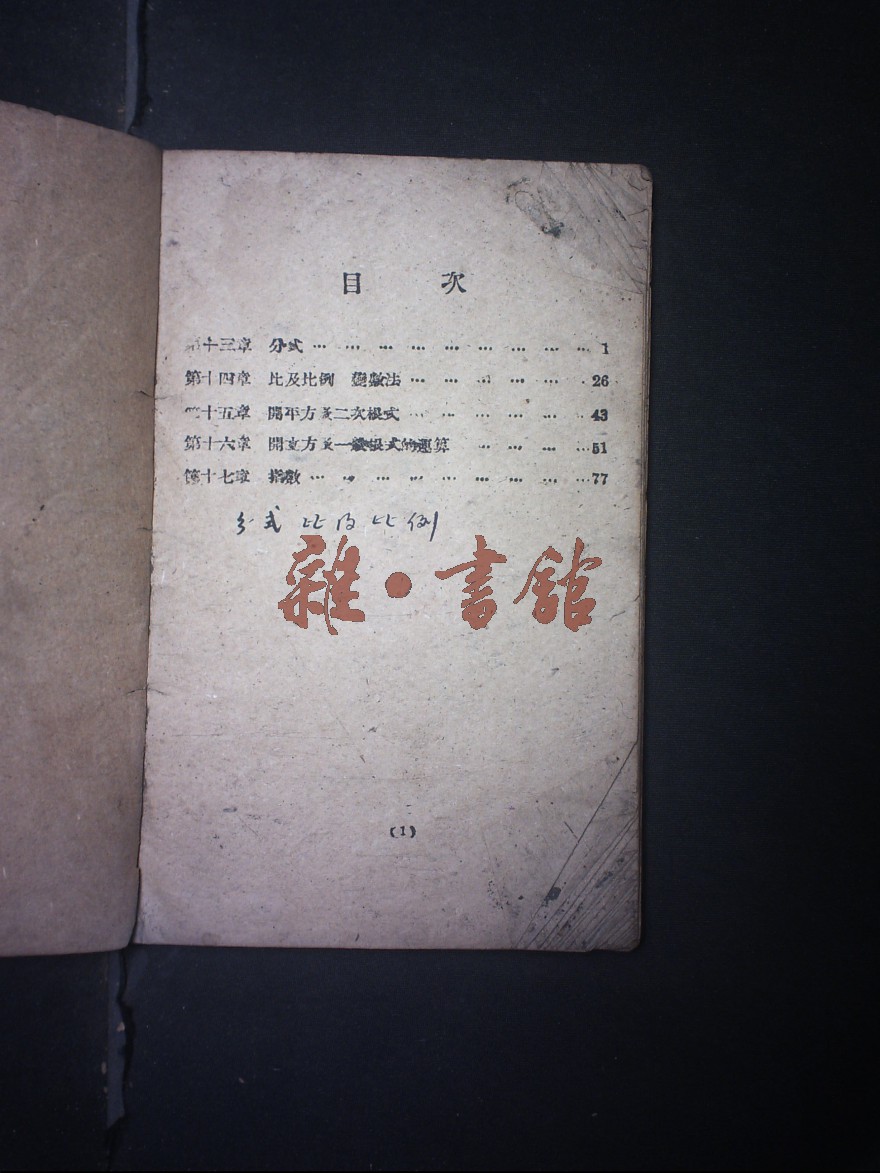 目 次
第十三章 分式 … … … … … … … … … 1
第十四章 比及比例 變數法 … … … … … … 26
第十五章 開平方及二次根式 … … … … … … 43
第十六章 開立方及一般根式的運算 … … … … 51
第十七章 指數 … … … … … … … … … 77
分式 比及比例
雜·書館
(1)